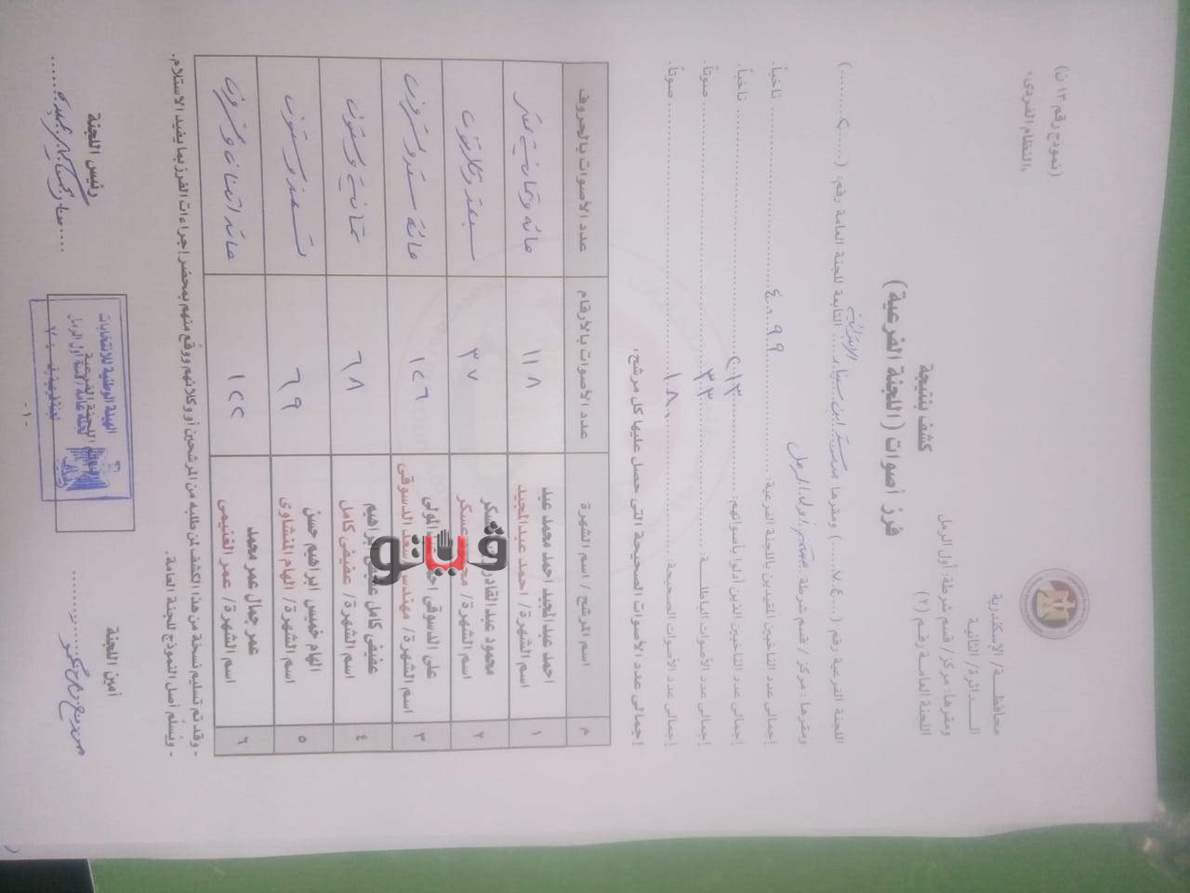 (نموذج رقم ١٣ ن)
النظام الفردى.
محافظة/ الإسكندرية
الدائرة/ الثانية
ومقرها: مركز/ قسم شرطة: أول الرمل
اللجنة العامة رقم (٢)
كشف بنتيجة
فرز أصوات (اللجنة الفرعية)
اللجنة الفرعية رقم (....٧٤....) ومقرها مدرسة ابن سيناء الابتدائية التابعة للجنة العامة رقم: (....٢....)
ومقرها: مركز/ قسم شرطة أول الرمل
إجمالى عدد الناخبين المقيدين باللجنة الفرعية ٤٠٩٩ ناخباً.
إجمالى عدد الناخبين الذين أدلوا بأصواتهم ٢١٣ ناخباً.
إجمالى عدد الأصوات الباطلة ٣٣ صوتاً.
إجمالى عدد الأصوات الصحيحة ١٨٠ صوتاً.
إجمالى عدد الأصوات الصحيحة التى حصل عليها كل مرشح.
م اسم المرشح / اسم الشهرة عدد الأصوات بالأرقام عدد الأصوات بالحروف
١ احمد عبدالمجيد احمد محمد عبد
اسم الشهرة/ احمد عبدالمجيد ١١٨ مائه وثمانية عشر
٢ محمود عبدالقادر عسكر
اسم الشهرة/ عسكر ٣٧ سبعة وثلاثون
٣ على الدسوقى المولى
اسم الشهرة/ مهندس الدسوقى ١٢٦ مائة ستة وعشرون
٤ عفيفى كامل عفيفى ابراهيم
اسم الشهرة/ عفيفى كامل ٦٨ ثمانية وستون
٥ الهام خميس ابراهيم حسن
اسم الشهرة/ الهام المنشاوى ٦٩ تسعة وستون
٦ عمر جمال عمر محمد
اسم الشهرة/ عمر الغنيمى ١٢٢ مائه اثنان وعشرون
- وقد تم تسليم نسخة من هذا الكشف لمن طلبه من المرشحين أو وكلائهم ووقع منهم بمحضر إجراءات الفرز بما يفيد الاستلام.
- ويسلم أصل النموذج للجنة العامة.
أمين اللجنة
رئيس اللجنة
الهيئة الوطنية للانتخابات
اللجنة الفرعية
-١-
فيتو